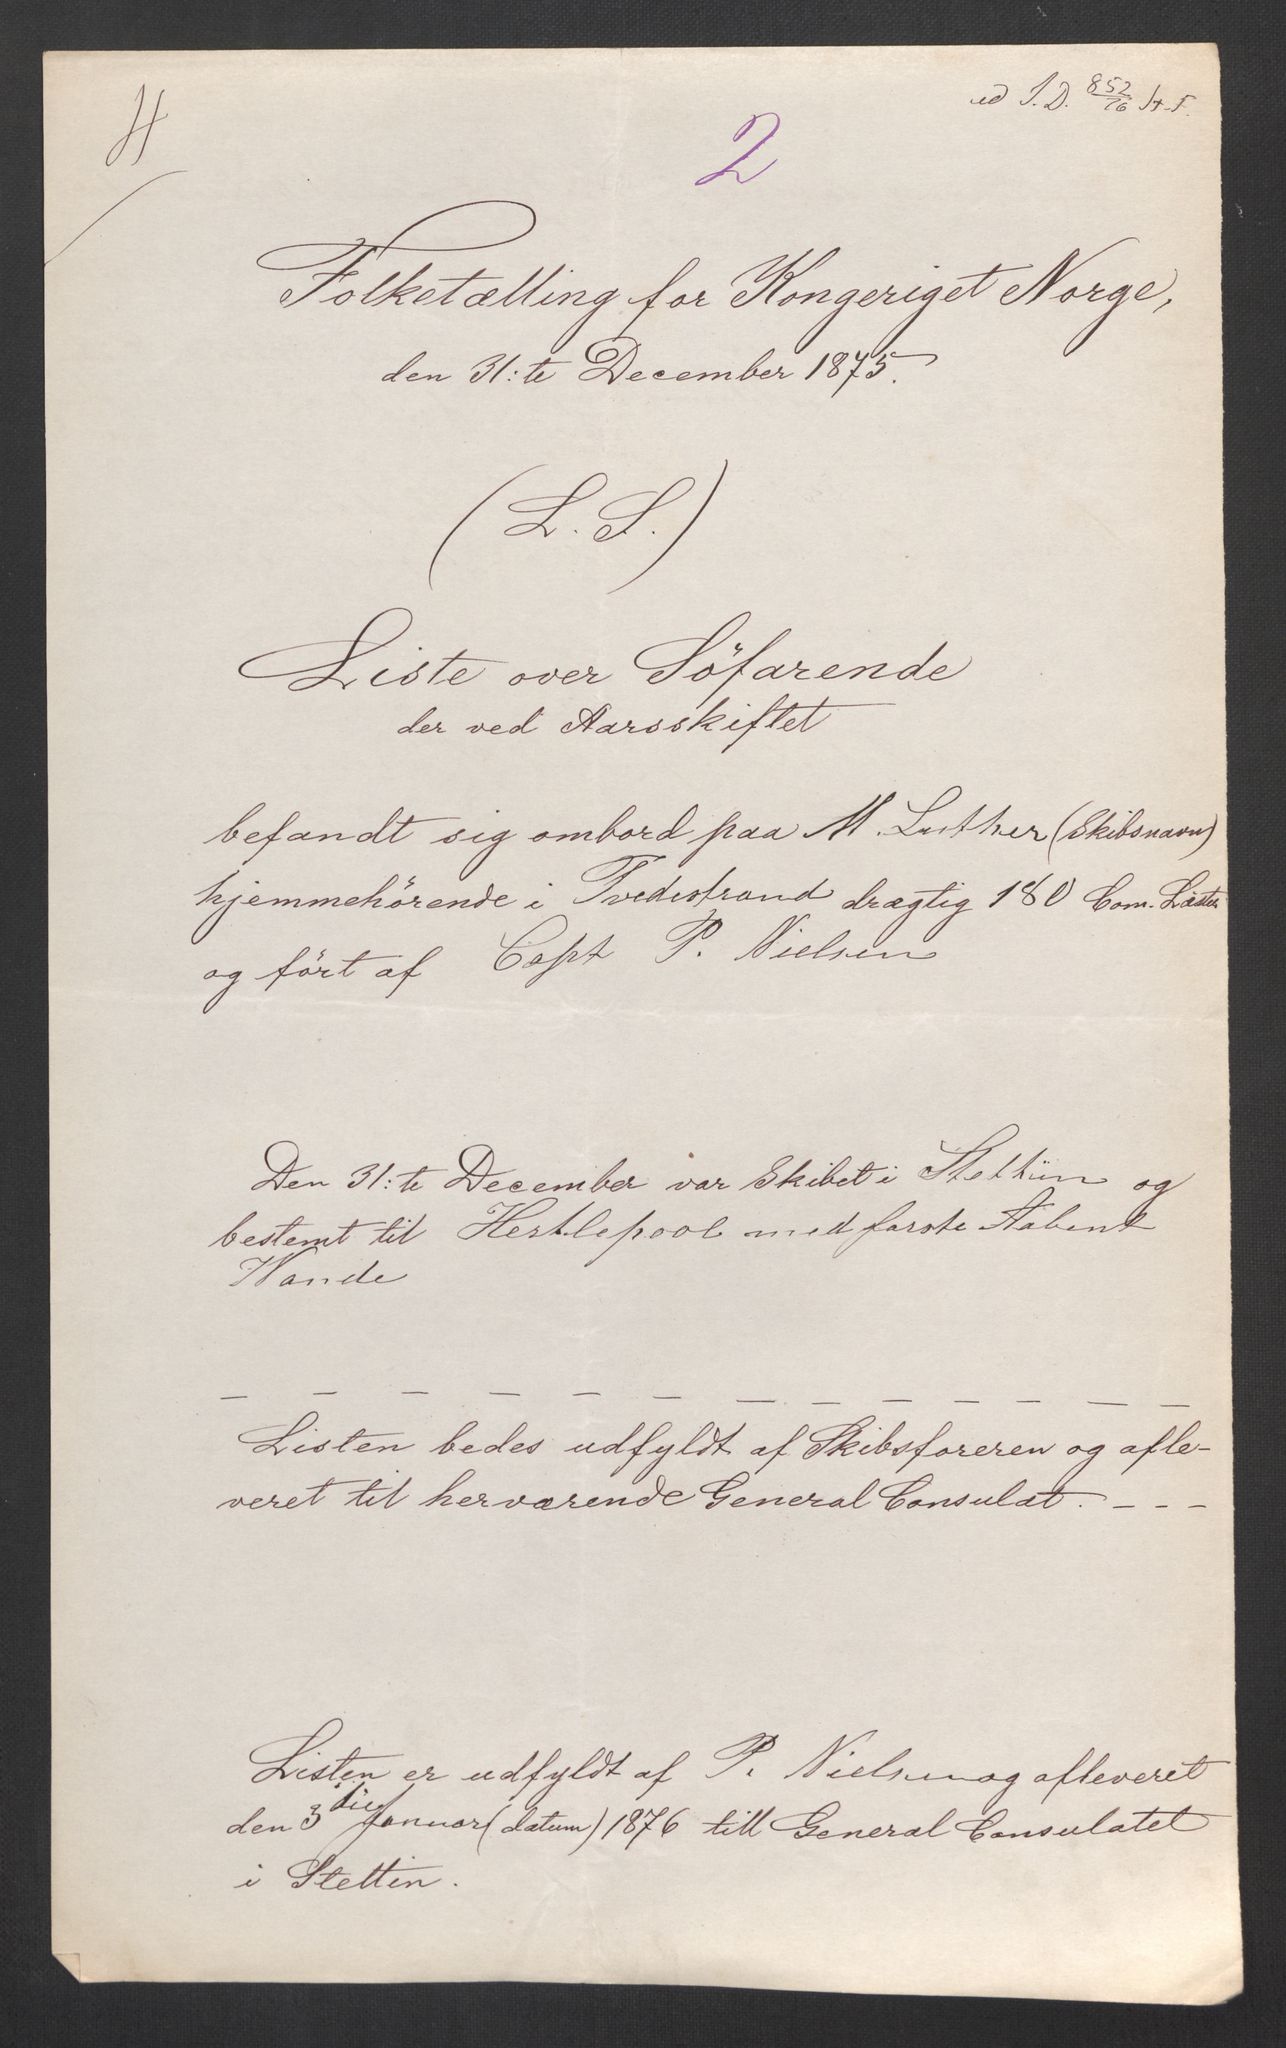 ud I.D. 852/76 H.F.
H
2
Folketælling for Kongeriget Norge,
den 31:te December 1875.
(L. S.)
Liste over Söfarende
der ved Aarsskiftet
befandt sig ombord paa M. Luther (Skibsnavn)
hjemmehörende i Tvedestrand drægtig 180 Com. Læster
og fört af Capt P. Nielsen
Den 31:te December var Skibet i Stettiin og
bestemt til Hertlepool med forste Aabent
Vande
Listen bedes udfyldt af Skibsforeren og afle-
veret til herværende General Consulat. - - -
Listen er udfyldt af P. Nielsen og afleveret
den 3die Januar (datum) 1876 till General Consulatet
i Stettin.